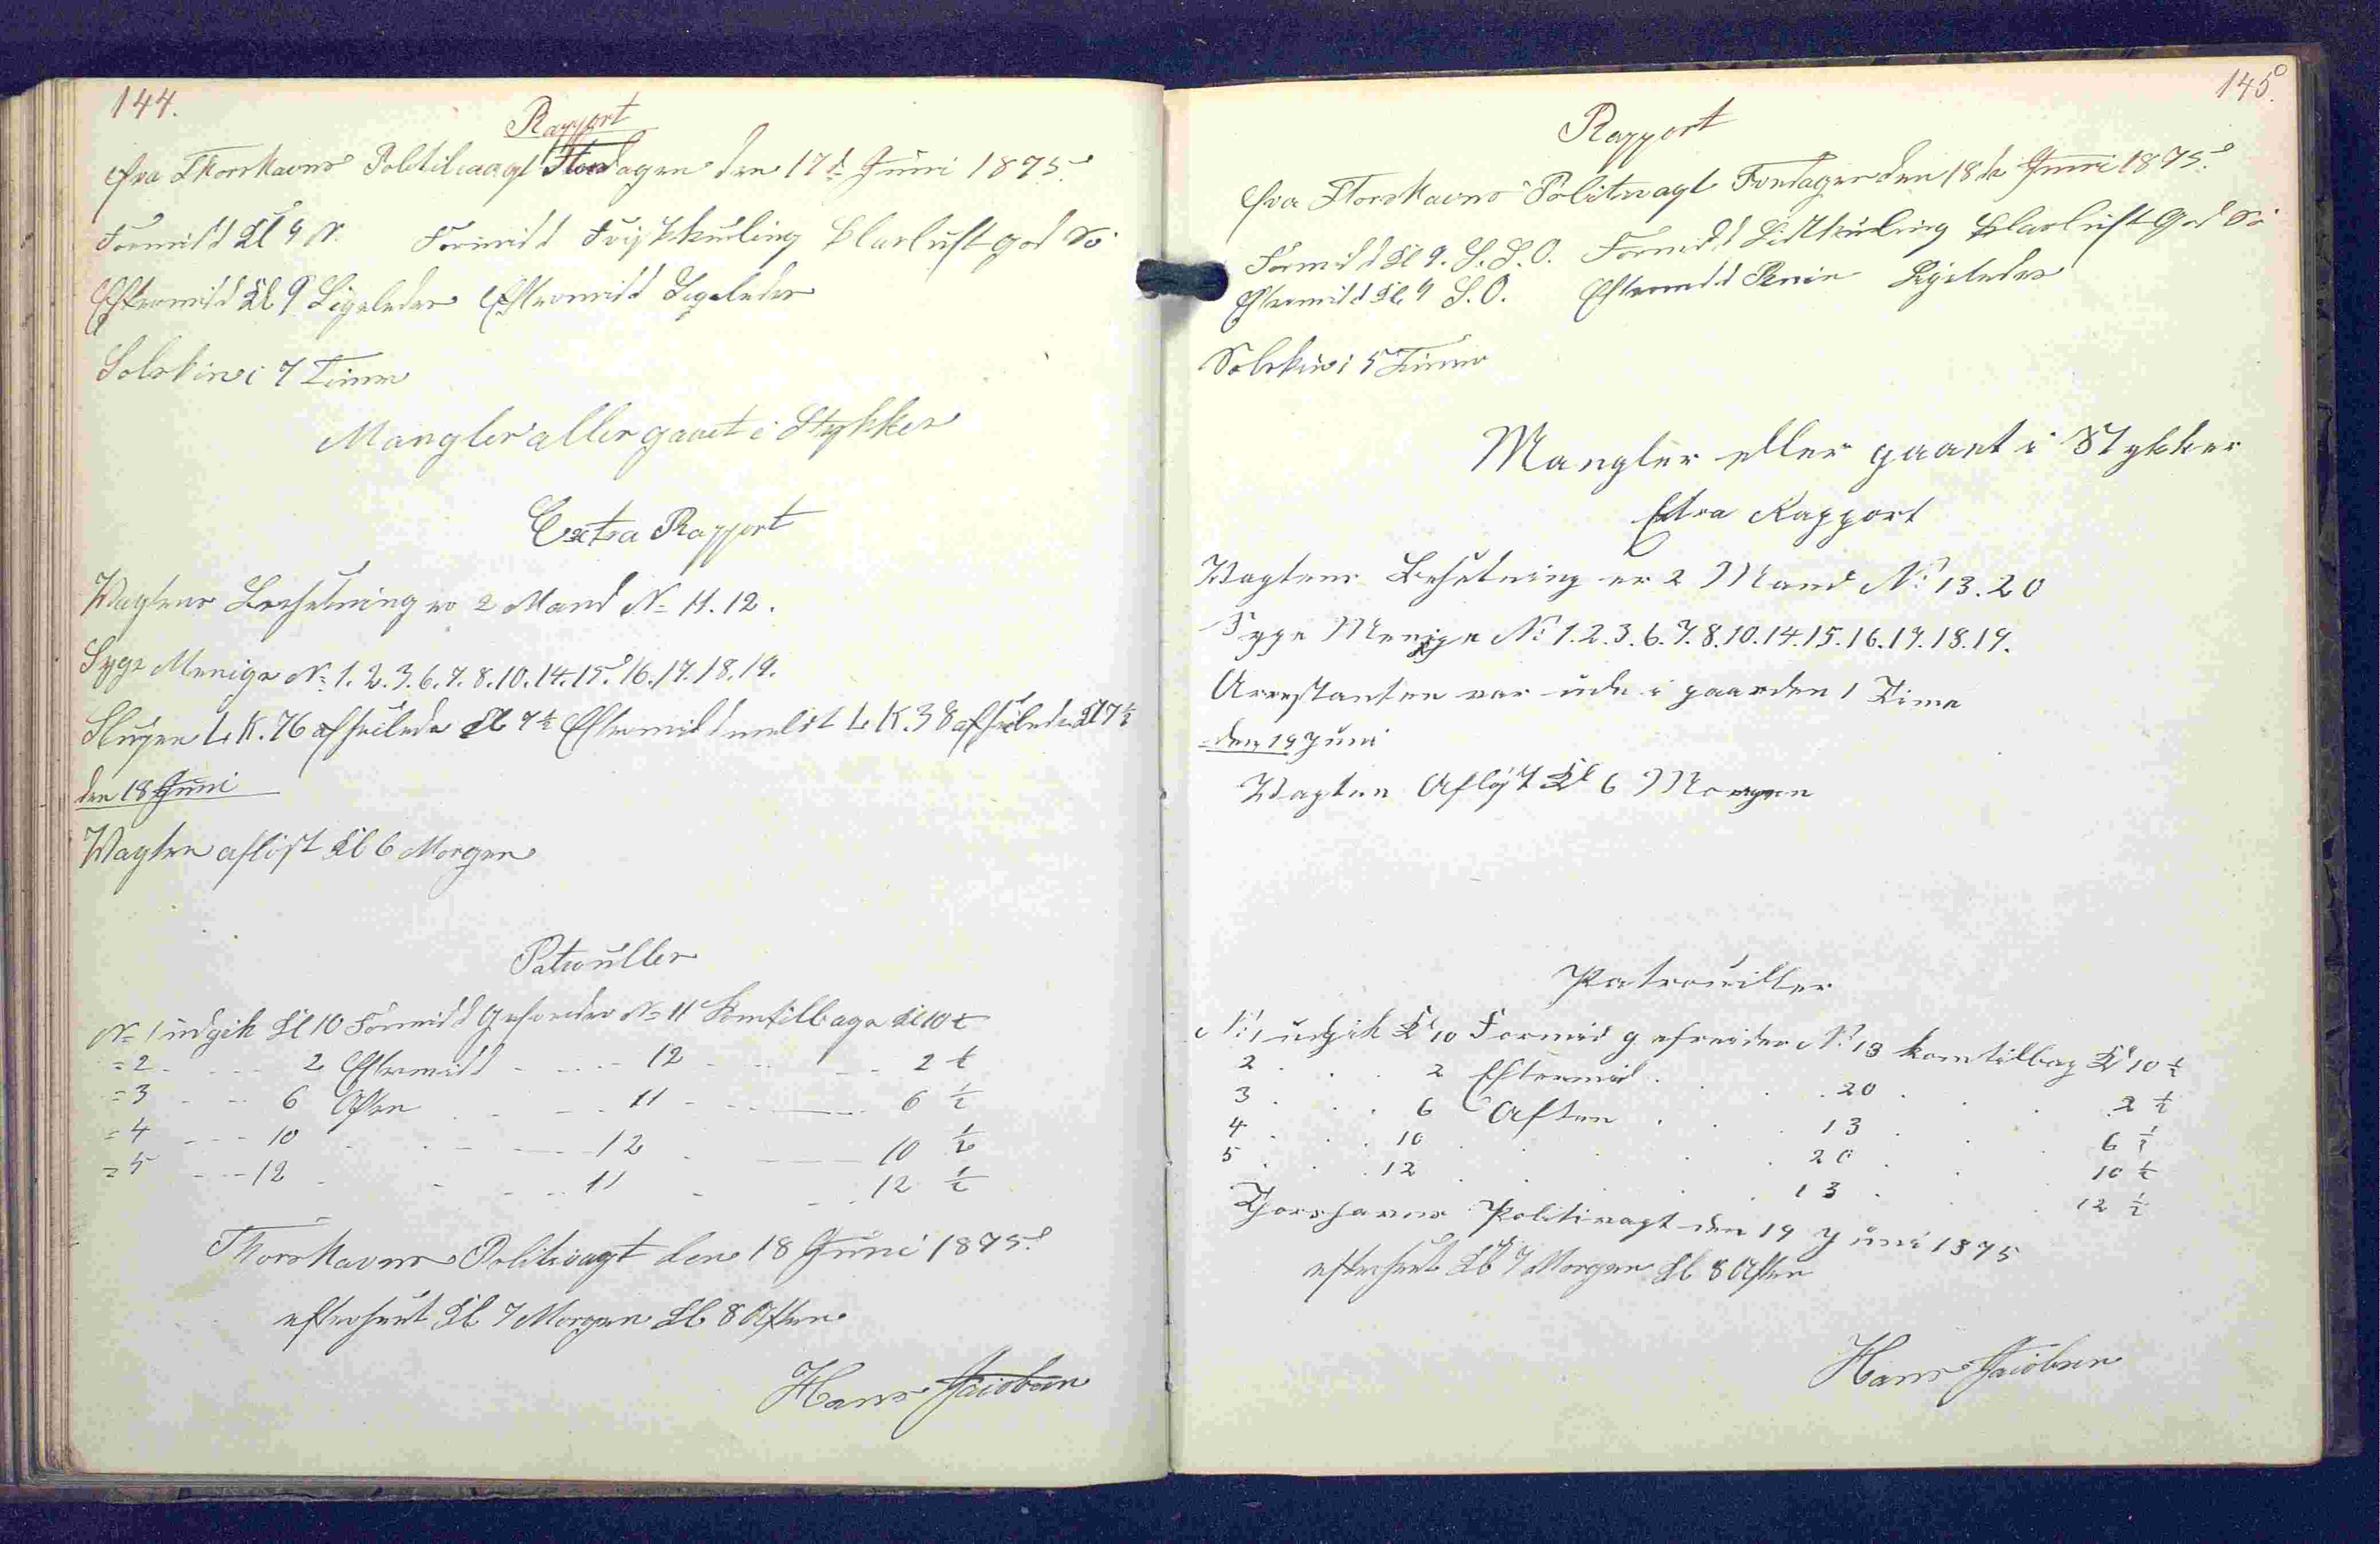 144.
Rapport
fra Thorshavns Politivagt Torsdagen den 17de Juni 1875.
Formidd Kl 9 N. Formidd Friskkuling Klarluft god Sö
Eftermidd Kl 9 Ligeledes Eftermidd Ligeledes
Solskin i 7 Timer
Mangler eller gaaet i Stykker
Extra Rapport
Vagtens Besetning er 2 Mand No 11. 12.
Syge Menige No 1. 2. 3. 6. 7. 8. 10. 14. 15. 16. 17. 18. 19.
Slupen L. K. 76 afseilede Kl 7½ Eftermidd meldt L. K. 38 afseilede Kl 7½
den 18 Juni
Vagten aflöst Kl 6 Morgen
Patrouller
No 1 udgik Kl 10 Formidd Gefreider No 11 kom tilbage Kl 10½
= 2 - - - 2 Eftermidd - - - 12 - - - 2 ½
= 3 - - - 6 Aften - - - 11 - - - 6 ½
= 4 - - - 10 - - - 12 - - - 10 ½
= 5 - - - 12 - - - 11 - - - 12 ½
Thorshavns Politivagt den 18 Juni 1875.
efterseet Kl 7 Morgen Kl 8 Aften
Hans Jacobsen
145.
Rapport
fra Thorshavns Politivagt Fredagen den 18de Juni 1875.
Formidd Kl 9. S. S. O. Formidd Lidtkuling Klarluft God Sö
Eftermidd Kl 9 S. O. Eftermidd Ligeledes
Solskin i 5 Timer
Mangler eller gaaet i Stykker
Extra Rapport
Vagtens Besetning er 2 Mand No 13. 20
Syge Menige No 1. 2. 3. 6. 7. 8. 10. 14. 15. 16. 17. 18. 19.
Arrestanten var ude i gaarden 1 Time
den 19 Juni
Vagten Afløst Kl 6 Morgen
Patrouiller
No 1 udgik Kl 10 Formid gefreider No 13 kom tilbag Kl 10 ½
2 . . . 2 Eftermid . . . 20 . . . 2 ½
3 . . . 6 Aften . . . 13 . . . 6 ½
4 . . . 10 . . . 20 . . . 10 ½
5 . . . 12 . . . 13 . . . 12 ½
Thorshavns Politivagt den 19 Juni 1875
efterseet Kl 7 Morgen Kl 8 Aften
Hans Jacobsen